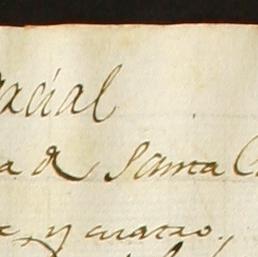 acial
a de Santa C
e, y cuatro,